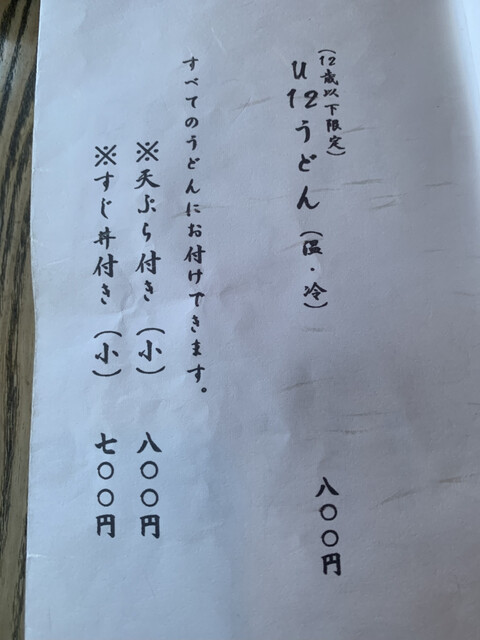 (12歳以下限定)
U12うどん(温・冷) 八〇〇円
すべてのうどんにお付けできます。
※天ぷら付き(小) 八〇〇円
※すじ丼付き(小) 七〇〇円